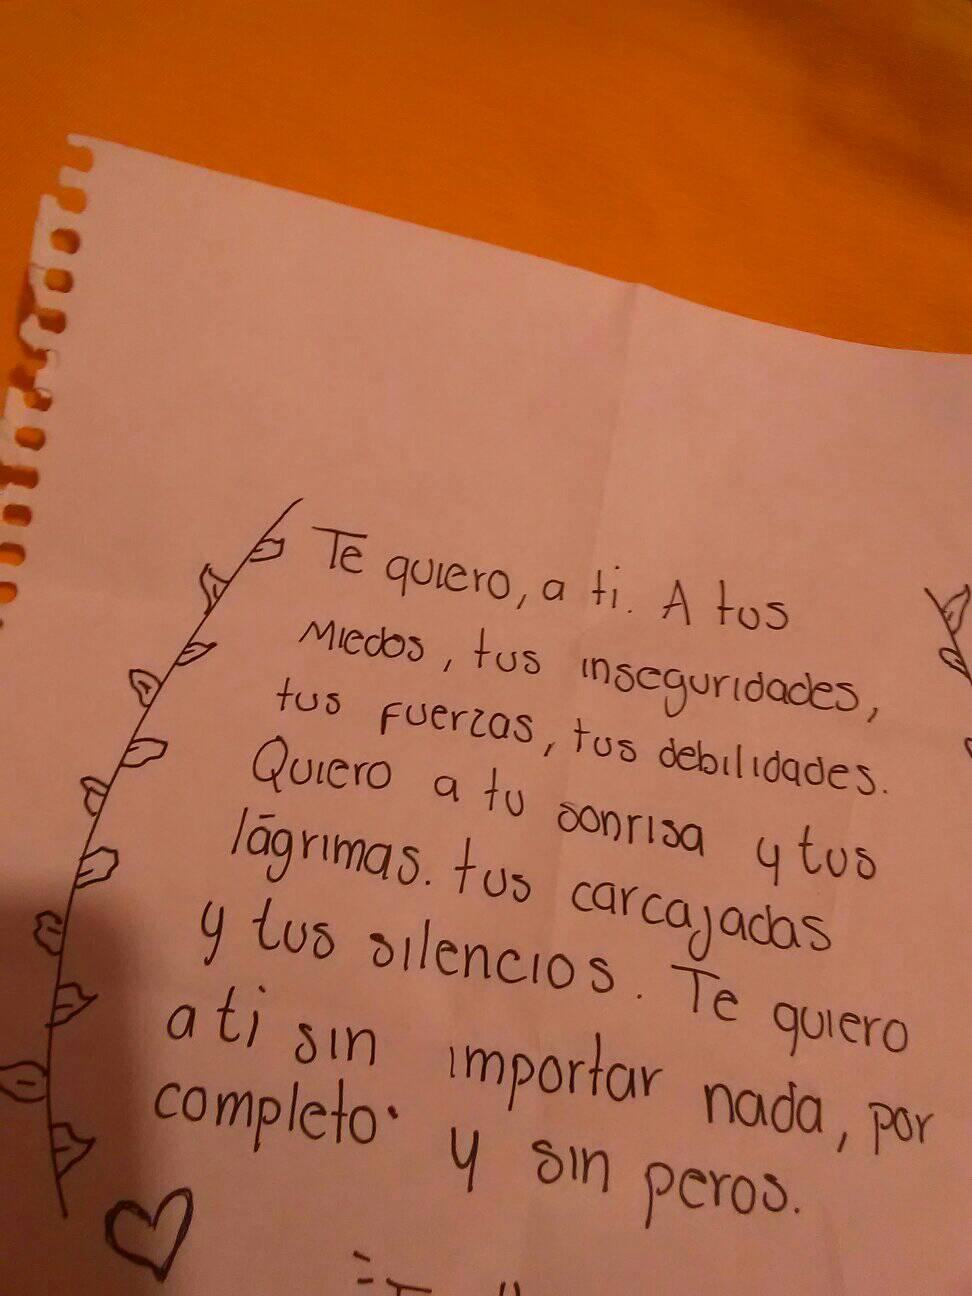 Te quiero, a ti. A tus
Miedos, tus inseguridades,
tus fuerzas, tus debilidades.
Quiero a tu sonrisa y tus
lágrimas. tus carcajadas
y tus silencios. Te quiero
a ti sin importar nada, por
completo. y sin peros.